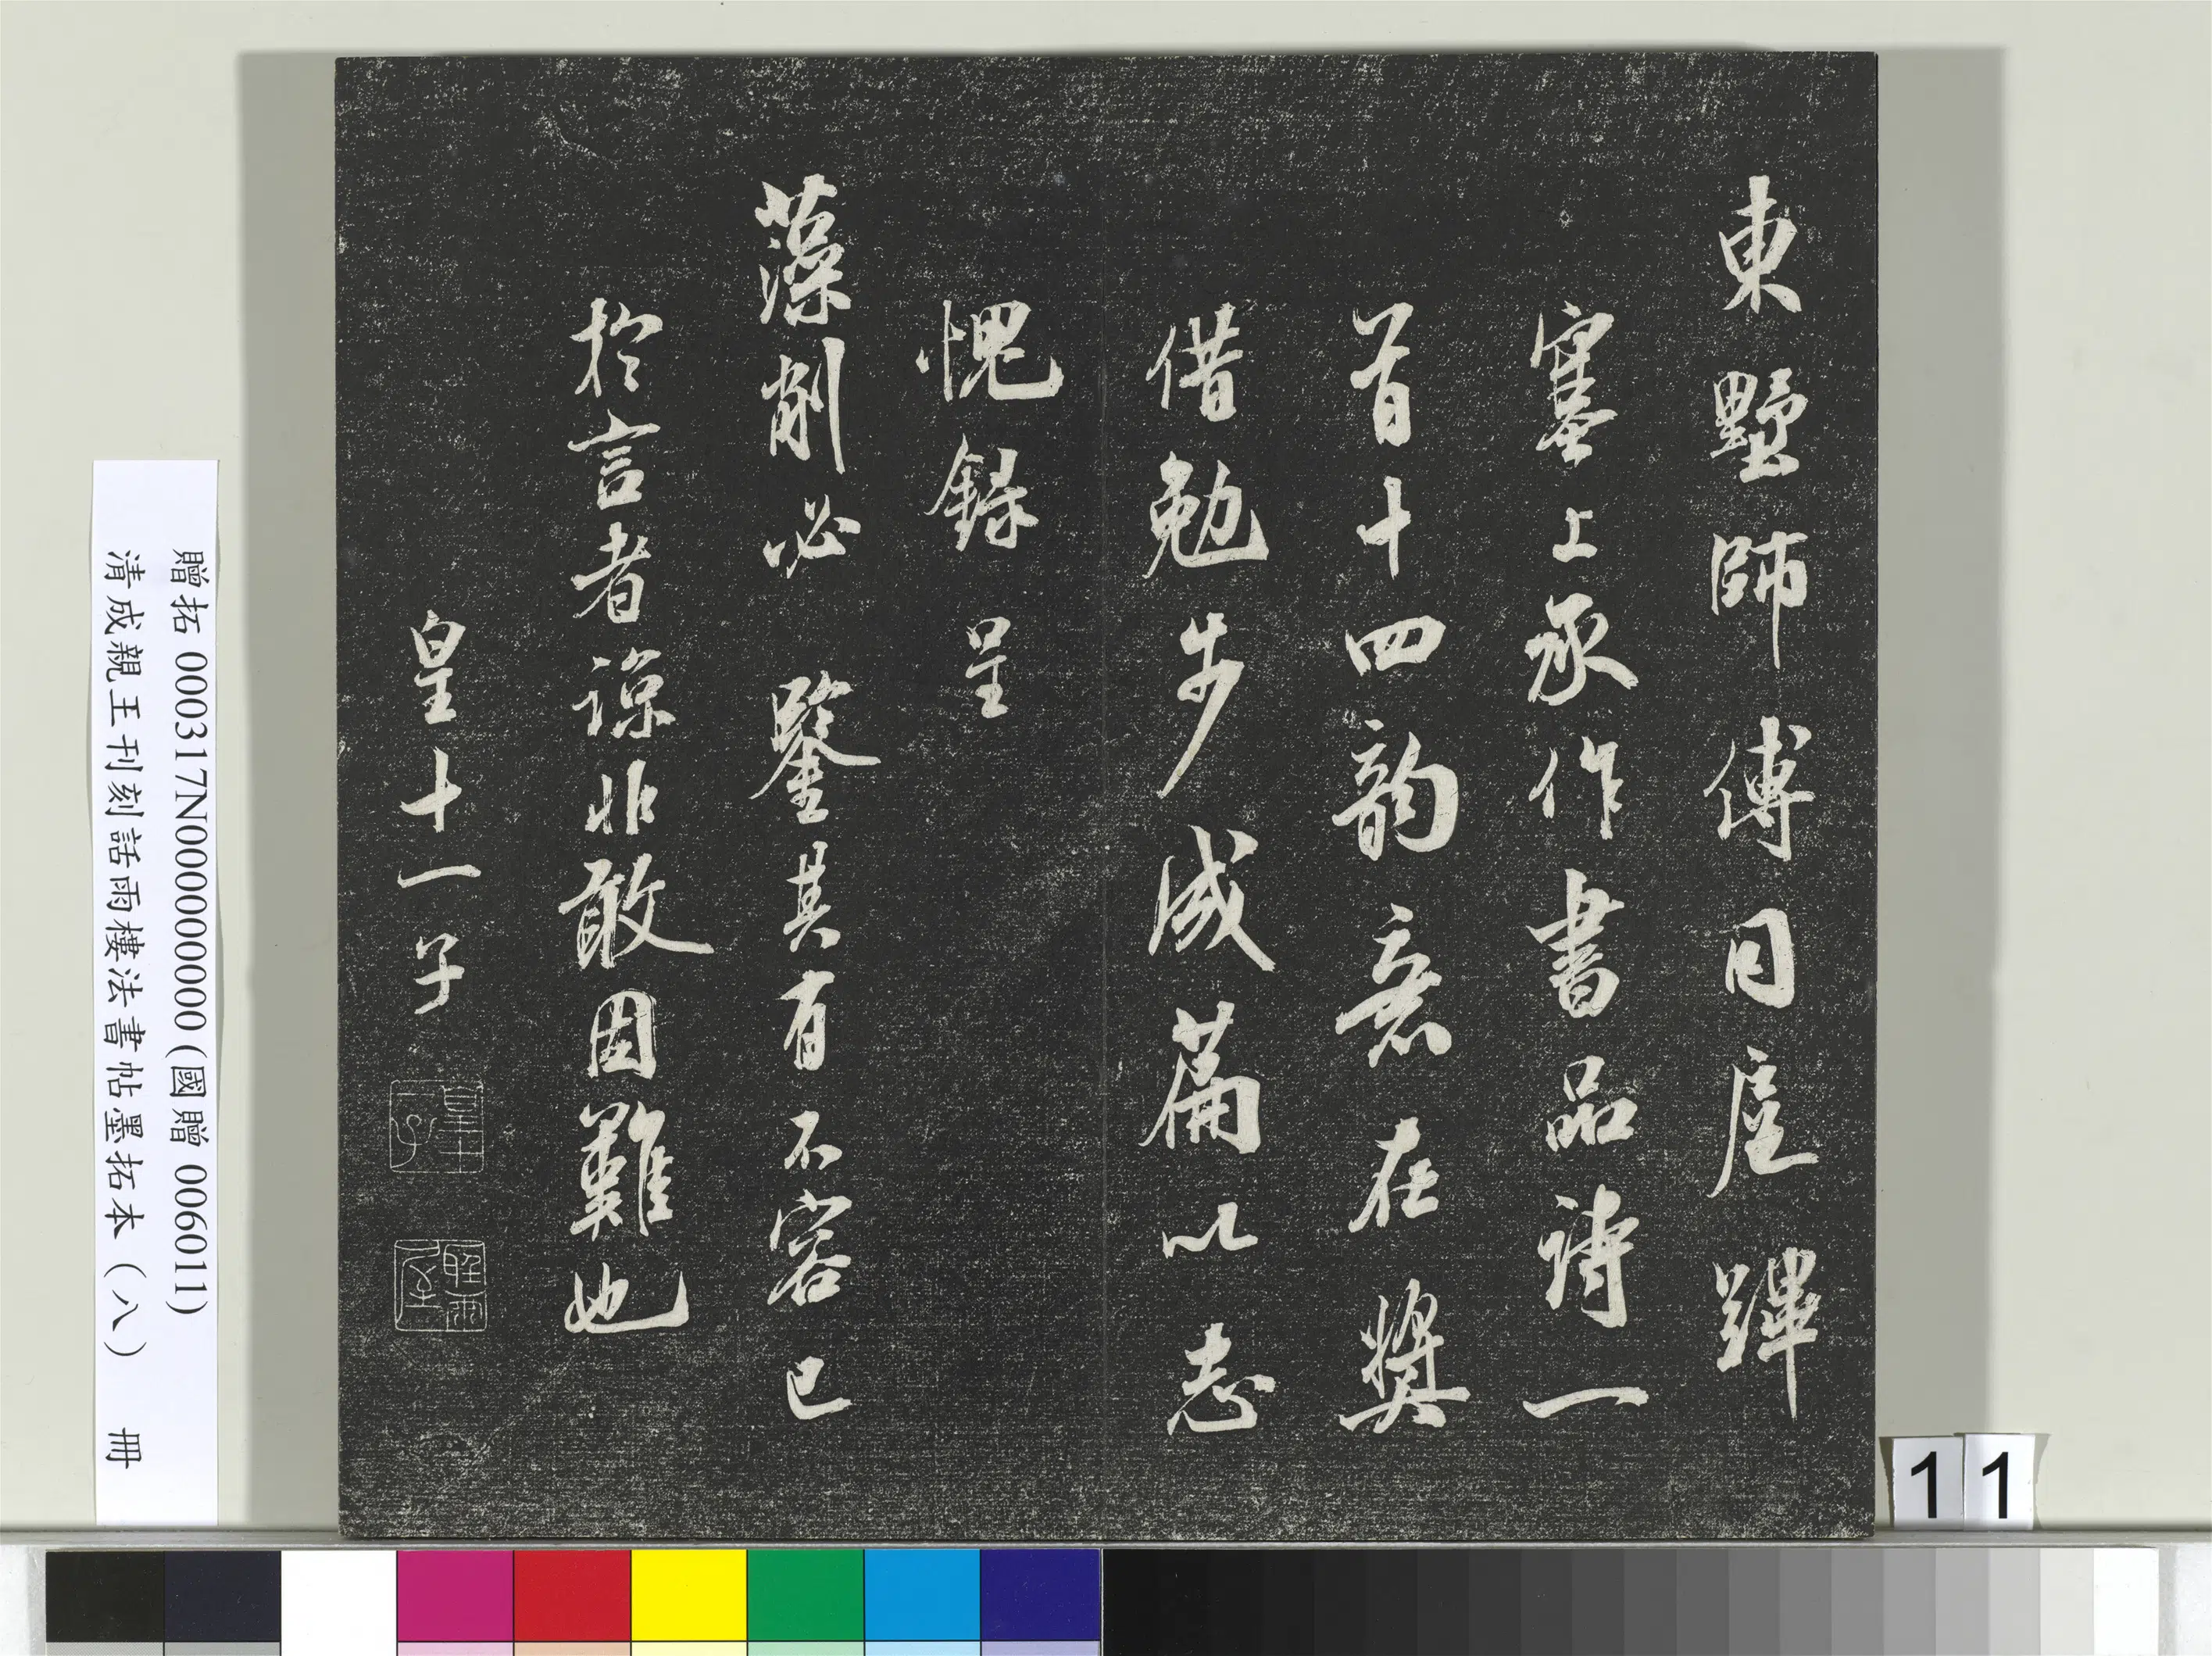 東墅師傅同扈蹕
塞上承作書品詩一
首十四韵意在奬
借勉步成篇以志
愧録呈
藻削必鑒其有不容已
於言者諒非敢因難也
皇十一子
皇十一子
贈拓 000317N000000000 (國贈 006011)
清成親王刊刻話雨樓法書帖墨拓本(八) 冊
11